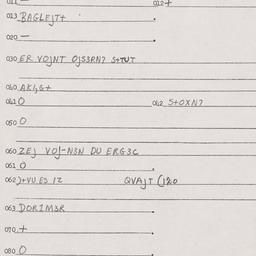 011 — 012 +
013 BAGLEJT+
020 —
030 ER VOJNT OJS3RN7 S+TUT
040 AK½G+
041 0 042 S+OXN7
050 0
060 ZEJ VOJ-N3N DU ERG3C
061 0
062 )+VU ES 12 QVAJT (120
063 DORIM3R
070 +
080 0